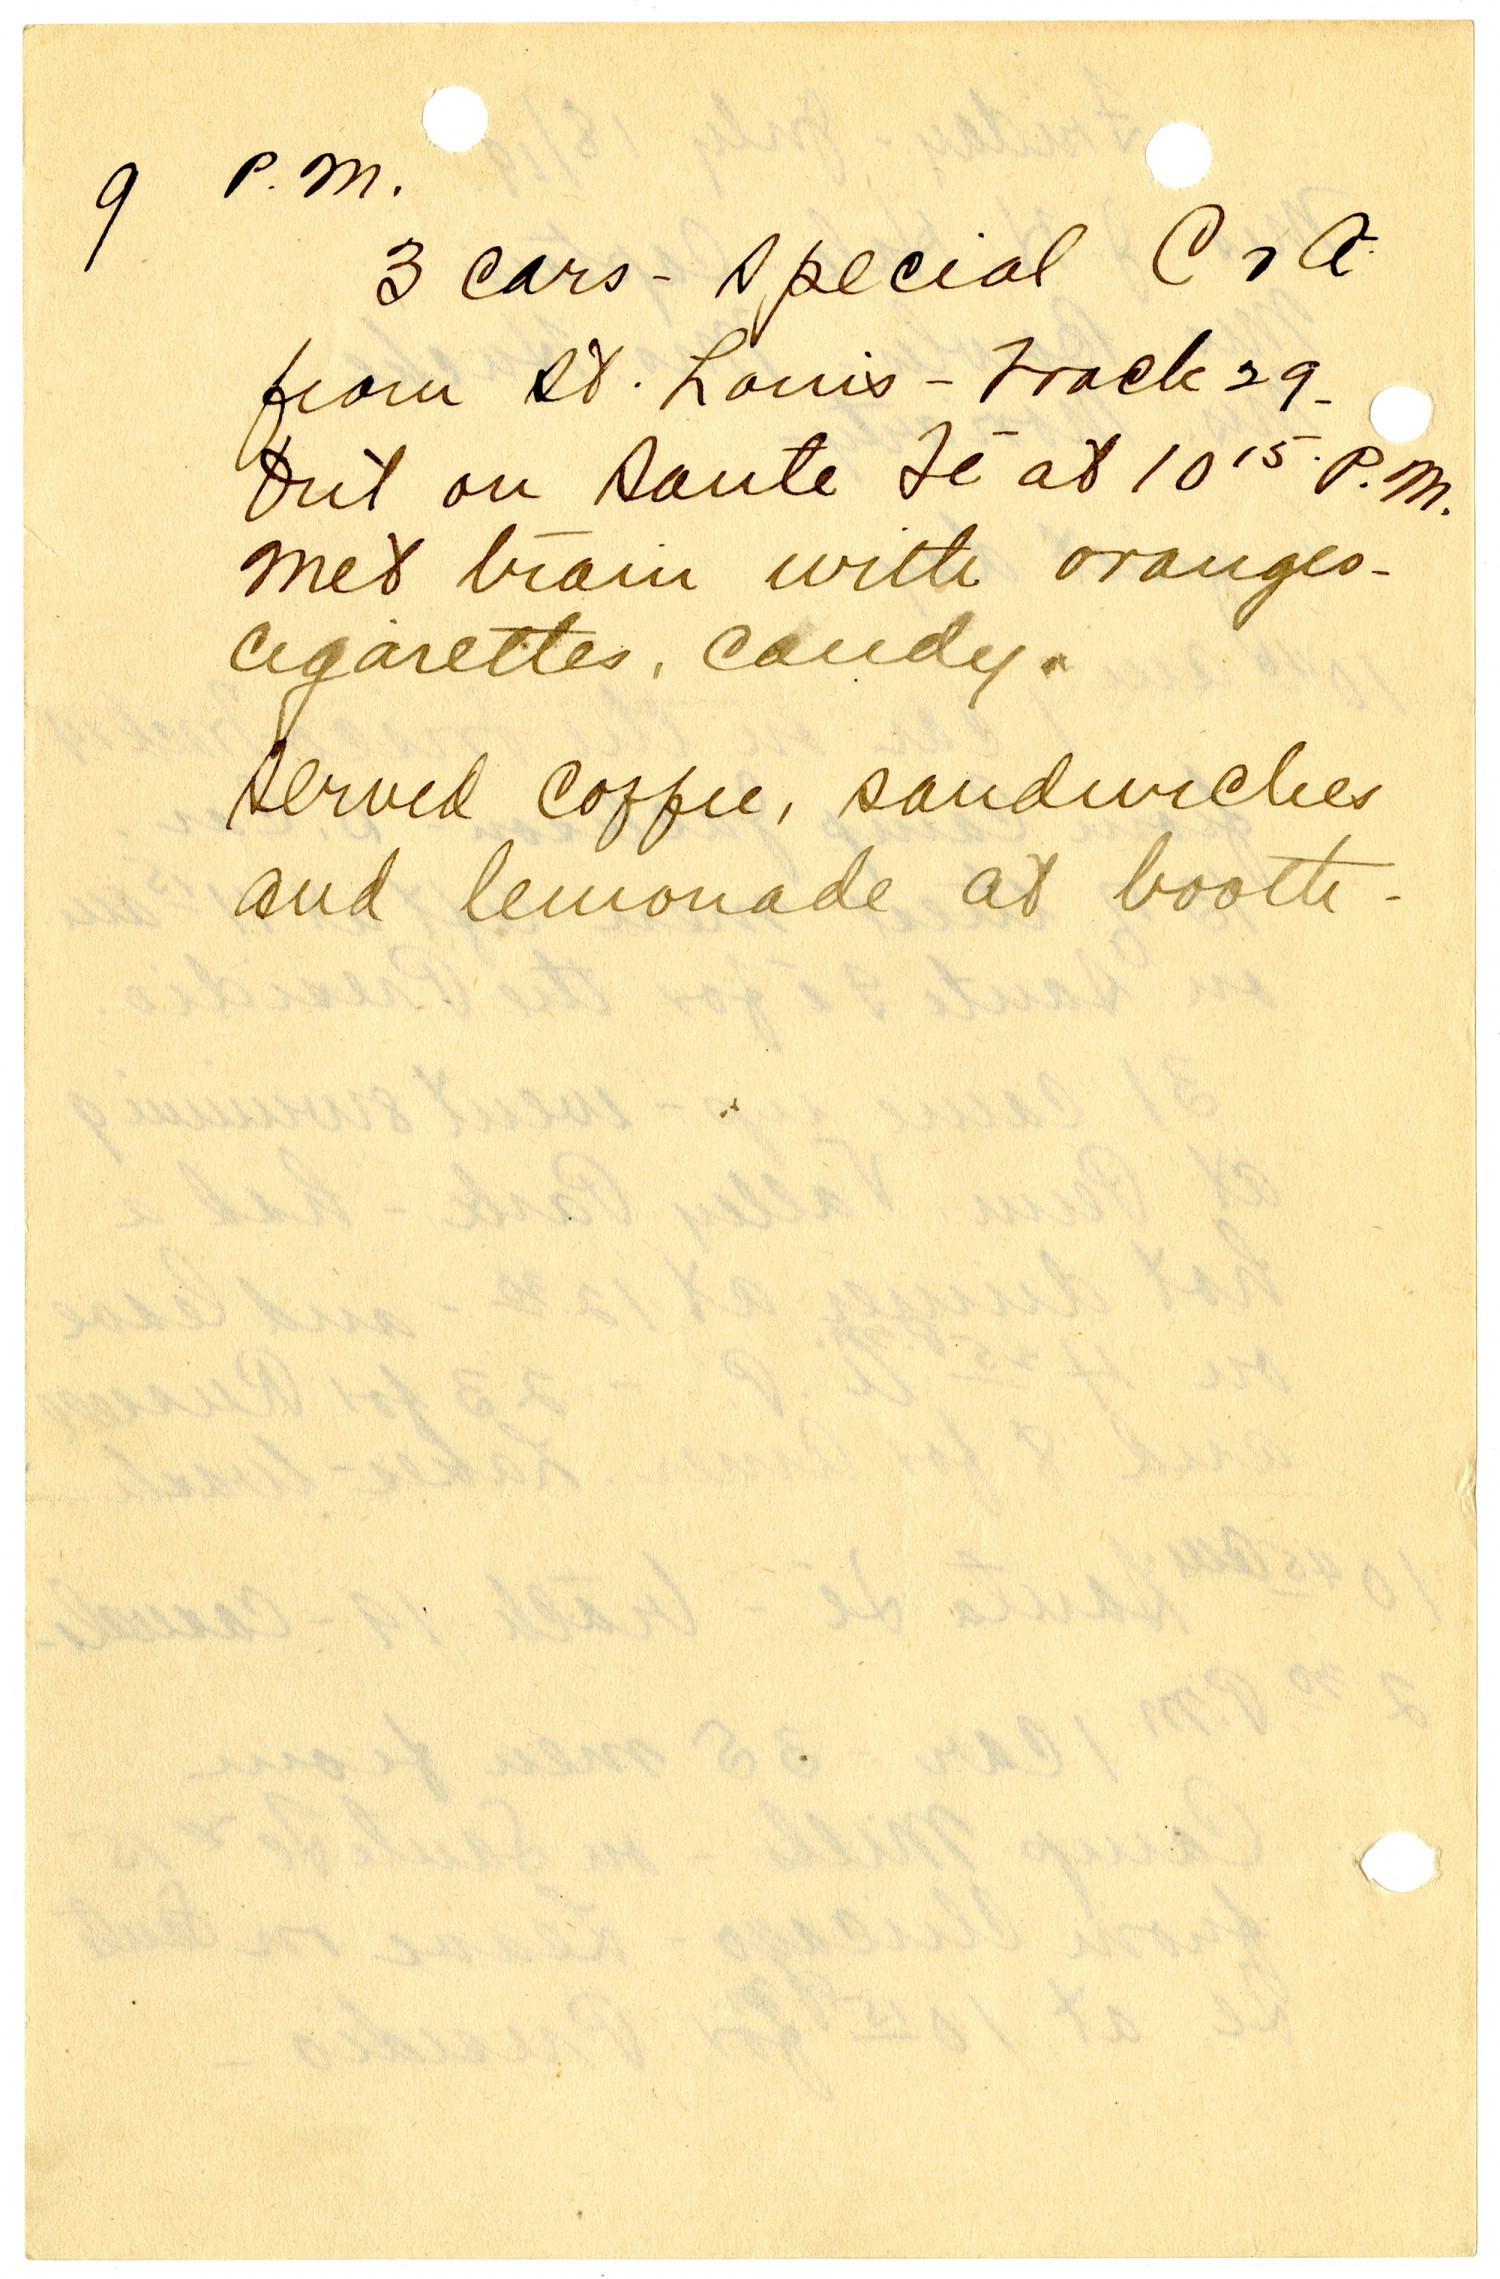 9 P.M.
3 cars - Special C & A
from St. Louis - Track 29 -
Out on Sante Fé at 10 15. P.M.
Met train with oranges -
cigarettes, candy.
Served coffee, sandwiches
and lemonade at booth -